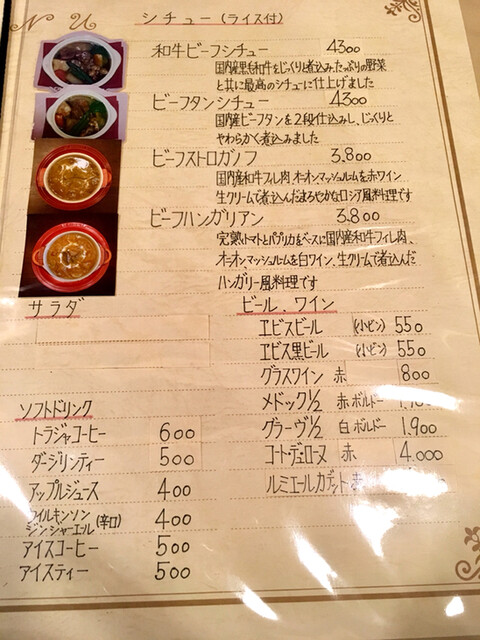 N U
シチュー(ライス付)
和牛ビーフシチュー 4300
国内産黒毛和牛をじっくりと煮込みたっぷりの野菜
と共に最高のシチューに仕上げました
ビーフタンシチュー 4300
国内産ビーフタンを2段仕込みし、じっくりと
やわらかく煮込みました
ビーフストロガノフ 3.800
国内産和牛フィレ肉、オニオン、マッシュルームを赤ワイン
生クリームで煮込んだまろやかなロシア風料理です
ビーフハンガリアン 3.800
完熟トマトとパプリカをベースに国内産和牛フィレ肉、
オニオン、マッシュルームを白ワイン、生クリームで煮込んだ
ハンガリー風料理です
サラダ
ソフトドリンク
トラジャコーヒー 600
ダージリンティー 500
アップルジュース 400
ウィルキンソン
ジンジャーエール (辛口) 400
アイスコーヒー 500
アイスティー 500
ビール、ワイン
エビスビール (小ビン) 550
エビス黒ビール (小ビン) 550
グラスワイン 赤 800
メドック1/2 赤ボルドー
グラーヴ1/2 白ボルドー 1,900
コート・デュ・ローヌ 赤 4.000
ルミエールカデット 赤